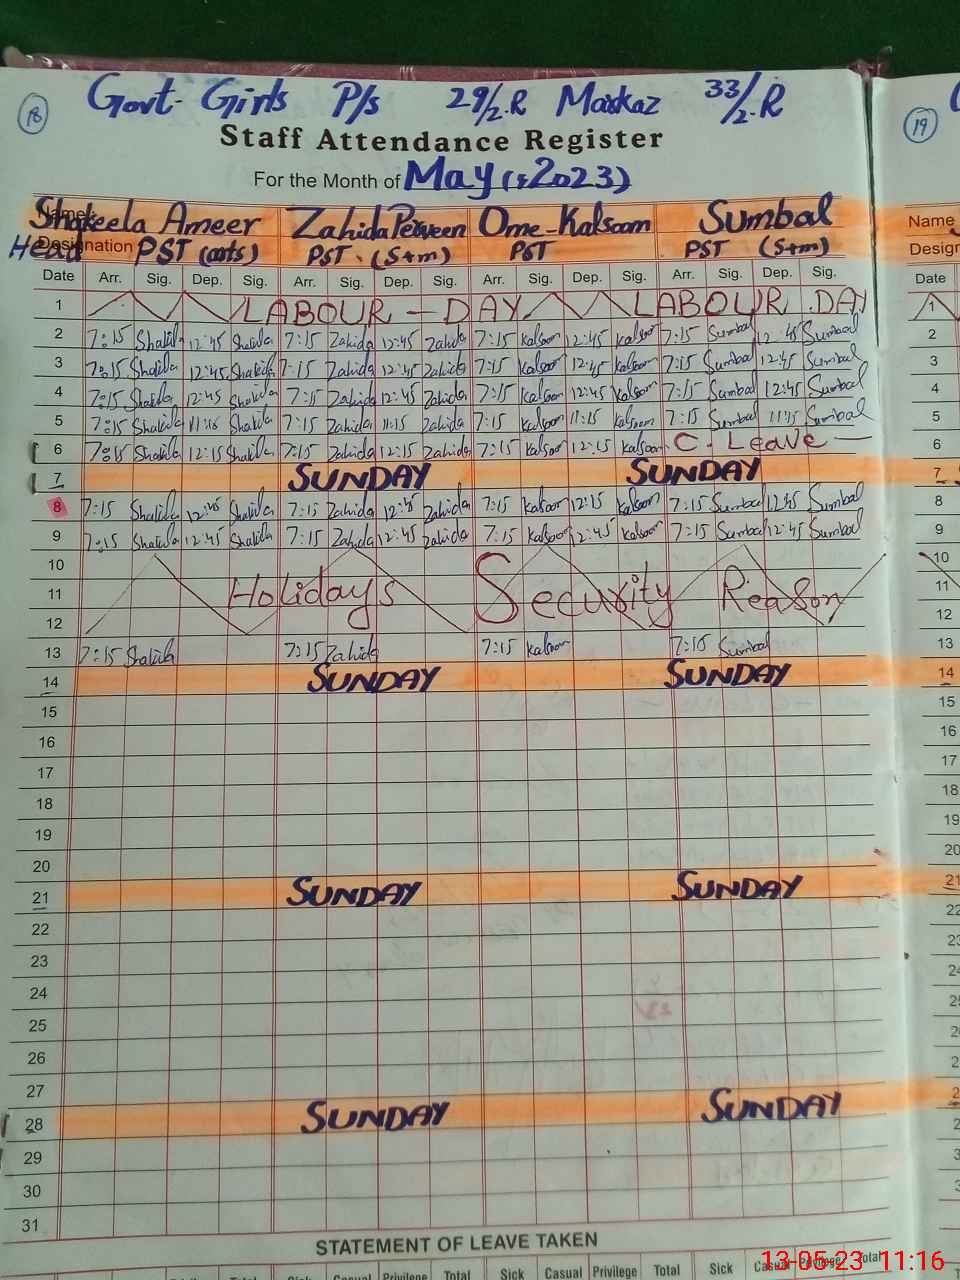 18 Govt. Girls P/s 29/2.R Markaz 33/2-R
19
Staff Attendance Register
For the Month of May (5,2023)
Name Shakeela Ameer Zahida Perveen Ome-Kalsoom Sumbal
Name
Head Designation PST (arts) PST. (S+m) PST PST (S+m)
Date Arr. Sig. Dep. Sig. Arr. Sig. Dep. Sig. Arr. Sig. Dep. Sig. Arr. Sig. Dep. Sig.
Date
1 LABOUR - DAY LABOUR . DAY
1
2 7:15 Shakila 12:45 Shakila 7:15 Zahida 12:45 Zahida 7:15 Kalsoom 12:45 Kalsoom 7:15 Sumbal 12:45 Sumbal
2
3 7:15 Shakila 12:45 Shakila 7:15 Zahida 12:45 Zahida 7:15 Kalsoom 12:45 Kalsoom 7:15 Sumbal 12:45 Sumbal
3
4 7:15 Shakila 12:45 Shakila 7:15 Zahida 12:45 Zahida 7:15 Kalsoom 12:45 Kalsoom 7:15 Sumbal 12:45 Sumbal
4
5 7:15 Shakila 11:15 Shakila 7:15 Zahida 11:15 Zahida 7:15 Kalsoom 11:15 Kalsoom 7:15 Sumbal 11:15 Sumbal
5
6 7:15 Shakila 12:15 Shakila 7:15 Zahida 12:15 Zahida 7:15 Kalsoom 12:15 Kalsoom C. Leave -
6
7 SUNDAY SUNDAY
7
8 7:15 Shakila 12:45 Shakila 7:15 Zahida 12:45 Zahida 7:15 Kalsoom 12:15 Kalsoom 7:15 Sumbal 12:45 Sumbal
8
9 7:15 Shakila 12:45 Shakila 7:15 Zahida 12:45 Zahida 7:15 Kalsoom 12:45 Kalsoom 7:15 Sumbal 12:45 Sumbal
9
10
10
11 Holidays Security Reason
11
12
12
13 7:15 Shakila 7:15 Zahida 7:15 Kalsoom 7:15 Sumbal
13
14 SUNDAY SUNDAY
14
15
15
16
16
17
17
18
18
19
19
20
20
21 SUNDAY SUNDAY
21
22
22
23
24
25
26
27
28 SUNDAY SUNDAY
29
30
31
STATEMENT OF LEAVE TAKEN
Sick Casual Privilege Total Sick Casual Privilege Total Sick Casual Privilege Total
13-05-23 11:16